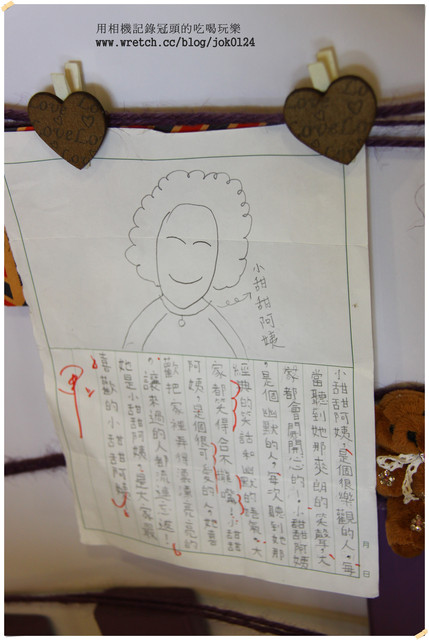 用相機記錄冠頭的吃喝玩樂
www.wretch.cc/blog/jok0124
Love
小甜甜阿姨
月 日
小甜甜阿姨，是個很樂觀的人，每
當聽到她那爽朗的笑聲，大
家都會開開心的！小甜甜阿姨
，是個幽默的人，每次聽到她那
經典的笑話和幽默的語氣，大
家都笑得合不攏嘴，小甜甜
阿姨，是個很可愛的人，她喜
歡把家裡弄得漂漂亮亮的
，讓來過的人都流連忘返！
她是小甜甜阿姨，是大家最
喜歡的小甜甜阿姨。